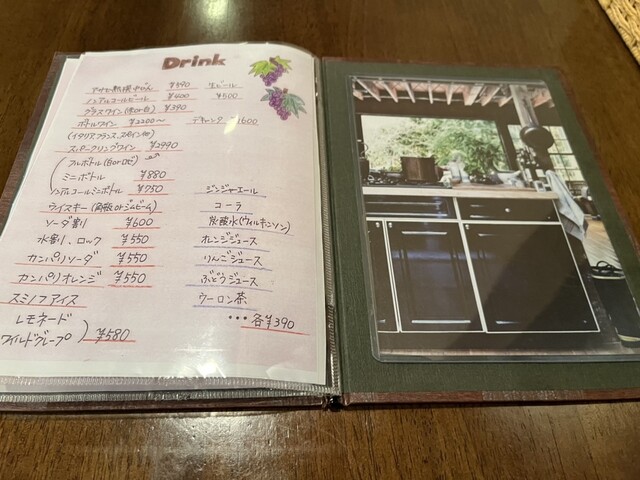 Drink
アサヒ熟撰びん ¥590 生ビール
ノンアルコールビール ¥400 ¥500
グラスワイン(赤or白) ¥390
ボトルワイン ¥2200〜 デキャンタ 1600
(イタリア,フランス,スペイン他)
スパークリングワイン ¥2990
フルボトル(白orロゼ)
ミニボトル ¥880
ノンアルコールミニボトル ¥750
ウイスキー(角瓶orジムビーム)
ソーダ割り ¥600
水割り、ロック ¥550
カンパリソーダ ¥550
カンパリオレンジ ¥550
スミノフアイス
レモネード
ワイルドグレープ ¥580
ジンジャーエール
コーラ
炭酸水(ウィルキンソン)
オレンジジュース
りんごジュース
ぶどうジュース
ウーロン茶
・・・各¥390